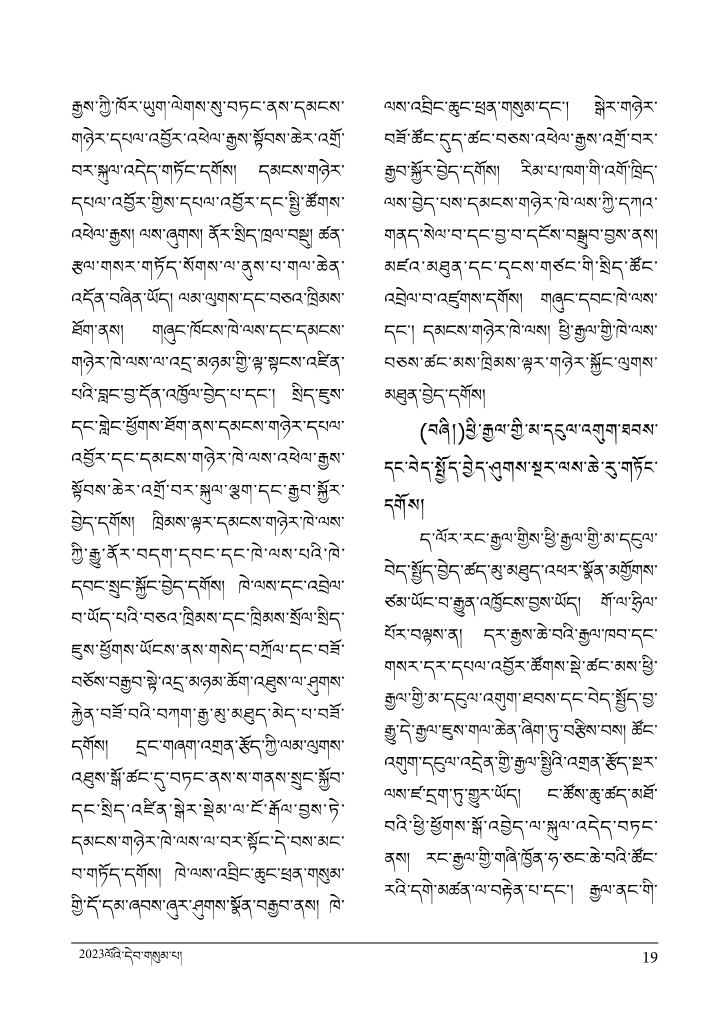 རྒྱས་ཀྱི་ཁོར་ཡུག་ལེགས་སུ་བཏང་ནས་དམངས་
གཉེར་དཔལ་འབྱོར་འཕེལ་རྒྱས་སྟོབས་ཆེར་འགྲོ་
བར་སྐུལ་འདེད་གཏོང་དགོས། དམངས་གཉེར་
དཔལ་འབྱོར་གྱིས་དཔལ་འབྱོར་དང་སྤྱི་ཚོགས་
འཕེལ་རྒྱས། ལས་ཞུགས། ནོར་སྲིད་ཁྲལ་བསྡུ། ཚན་
རྩལ་གསར་གཏོད་སོགས་ལ་ནུས་པ་གལ་ཆེན་
འདོན་བཞིན་ཡོད། ལམ་ལུགས་དང་བཅའ་ཁྲིམས་
ཐོག་ནས། གཞུང་ཁོངས་ཁེ་ལས་དང་དམངས་
གཉེར་ཁེ་ལས་ལ་འདྲ་མཉམ་གྱི་ལྟ་སྟངས་འཛིན་
པའི་བླང་བྱ་དོན་འཁྱོལ་བྱེད་པ་དང་། སྲིད་ཇུས་
དང་གླེང་ཕྱོགས་ཐོག་ནས་དམངས་གཉེར་དཔལ་
འབྱོར་དང་དམངས་གཉེར་ཁེ་ལས་འཕེལ་རྒྱས་
སྟོབས་ཆེར་འགྲོ་བར་སྐུལ་ལྕག་དང་རྒྱབ་སྐྱོར་
བྱེད་དགོས། ཁྲིམས་ལྟར་དམངས་གཉེར་ཁེ་ལས་
ཀྱི་རྒྱུ་ནོར་བདག་དབང་དང་ཁེ་ལས་པའི་ཁེ་
དབང་སྲུང་སྐྱོང་བྱེད་དགོས། ཁེ་ལས་དང་འབྲེལ་
བ་ཡོད་པའི་བཅའ་ཁྲིམས་དང་ཁྲིམས་སྲོལ་སྲིད་
ཇུས་ཕྱོགས་ཡོངས་ནས་གསེད་བཀྲོལ་དང་བཟོ་
བཅོས་བརྒྱབ་སྟེ་འདྲ་མཉམ་ཚོག་འཐུས་ལ་ཤུགས་
རྐྱེན་བཟོ་བའི་བཀག་རྒྱ་མུ་མཐུད་མེད་པ་བཟོ་
དགོས། དྲང་གཞག་འགྲན་རྩོད་ཀྱི་ལམ་ལུགས་
འཐུས་སྒོ་ཚང་དུ་བཏང་ནས་ས་གནས་སྲུང་སྐྱོབ་
དང་སྲིད་འཛིན་སྒེར་སྡེམ་ལ་ངོ་རྒོལ་བྱས་ཏེ་
དམངས་གཉེར་ཁེ་ལས་ལ་བར་སྟོང་དེ་བས་མང་
བ་གཏོད་དགོས། ཁེ་ལས་འབྲིང་ཆུང་ཕྲན་གསུམ་
གྱི་དོ་དམ་ཞབས་ཞུར་ཤུགས་སྣོན་བརྒྱབ་ནས། ཁེ་
ལས་འབྲིང་ཆུང་ཕྲན་གསུམ་དང་། སྒེར་གཉེར་
བཟོ་ཚོང་དུད་ཚང་བཅས་འཕེལ་རྒྱས་འགྲོ་བར་
རྒྱབ་སྐྱོར་བྱེད་དགོས། རིམ་པ་ཁག་གི་འགོ་ཁྲིད་
ལས་བྱེད་པས་དམངས་གཉེར་ཁེ་ལས་ཀྱི་དཀའ་
གནད་སེལ་བ་དང་བྱ་བ་དངོས་བསྒྲུབ་བྱས་ནས།
མཛའ་མཐུན་དང་དྭངས་གཙང་གི་སྲིད་ཚོང་
འབྲེལ་བ་འཛུགས་དགོས། གཞུང་དབང་ཁེ་ལས་
དང་། དམངས་གཉེར་ཁེ་ལས། ཕྱི་རྒྱལ་གྱི་ཁེ་ལས་
བཅས་ཚང་མས་ཁྲིམས་ལྟར་གཉེར་སྐྱོང་ལུགས་
མཐུན་བྱེད་དགོས།
(བཞི།)ཕྱི་རྒྱལ་གྱི་མ་དངུལ་འགུག་ཐབས་
དང་བེད་སྤྱོད་བྱེད་ཤུགས་སྔར་ལས་ཆེ་རུ་གཏོང་
དགོས།
ད་ལོར་རང་རྒྱལ་གྱིས་ཕྱི་རྒྱལ་གྱི་མ་དངུལ་
བེད་སྤྱོད་བྱེད་ཚད་མུ་མཐུད་འཕར་སྣོན་མགྱོགས་
ཙམ་ཡོང་བ་རྒྱུན་འཁྱོངས་བྱས་ཡོད། གོ་ལ་ཧྲིལ་
པོར་བལྟས་ན། དར་རྒྱས་ཆེ་བའི་རྒྱལ་ཁབ་དང་
གསར་དར་དཔལ་འབྱོར་ཚོགས་སྡེ་ཚང་མས་ཕྱི་
རྒྱལ་གྱི་མ་དངུལ་འགུག་ཐབས་དང་བེད་སྤྱོད་བྱ་
རྒྱུ་དེ་རྒྱལ་ཇུས་གལ་ཆེན་ཞིག་ཏུ་བརྩིས་བས། ཚོང་
འགུག་དངུལ་འདྲེན་གྱི་རྒྱལ་སྤྱིའི་འགྲན་རྩོད་སྔར་
ལས་ཛ་དྲག་ཏུ་གྱུར་ཡོད། ང་ཚོས་ཆུ་ཚད་མཐོ་
བའི་ཕྱི་ཕྱོགས་སྒོ་འབྱེད་ལ་སྐུལ་འདེད་བཏང་
ནས། རང་རྒྱལ་གྱི་གཞི་ཁྱོན་ཧ་ཅང་ཆེ་བའི་ཚོང་
རའི་དགེ་མཚན་ལ་བརྟེན་པ་དང་། རྒྱལ་ནང་གི་
2023ལོའི་དེབ་གསུམ་པ།
19